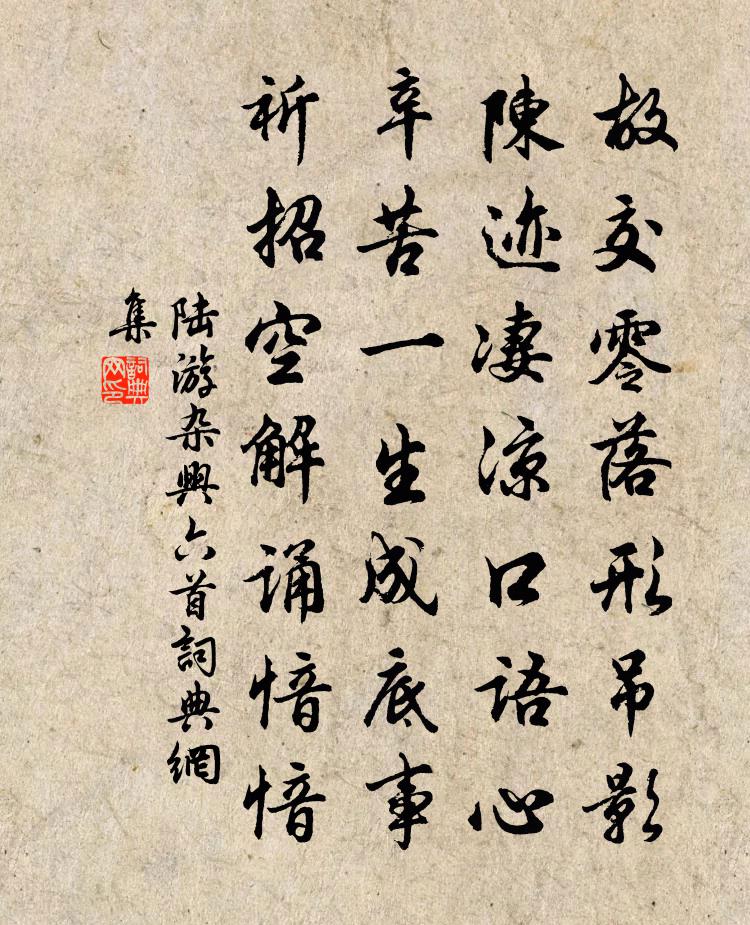 故交零落形吊影
陳迹凄凉口語心
辛苦一生成底事
祈招空解誦愔愔
陆游杂興六首詞典網
集
詞典
网印